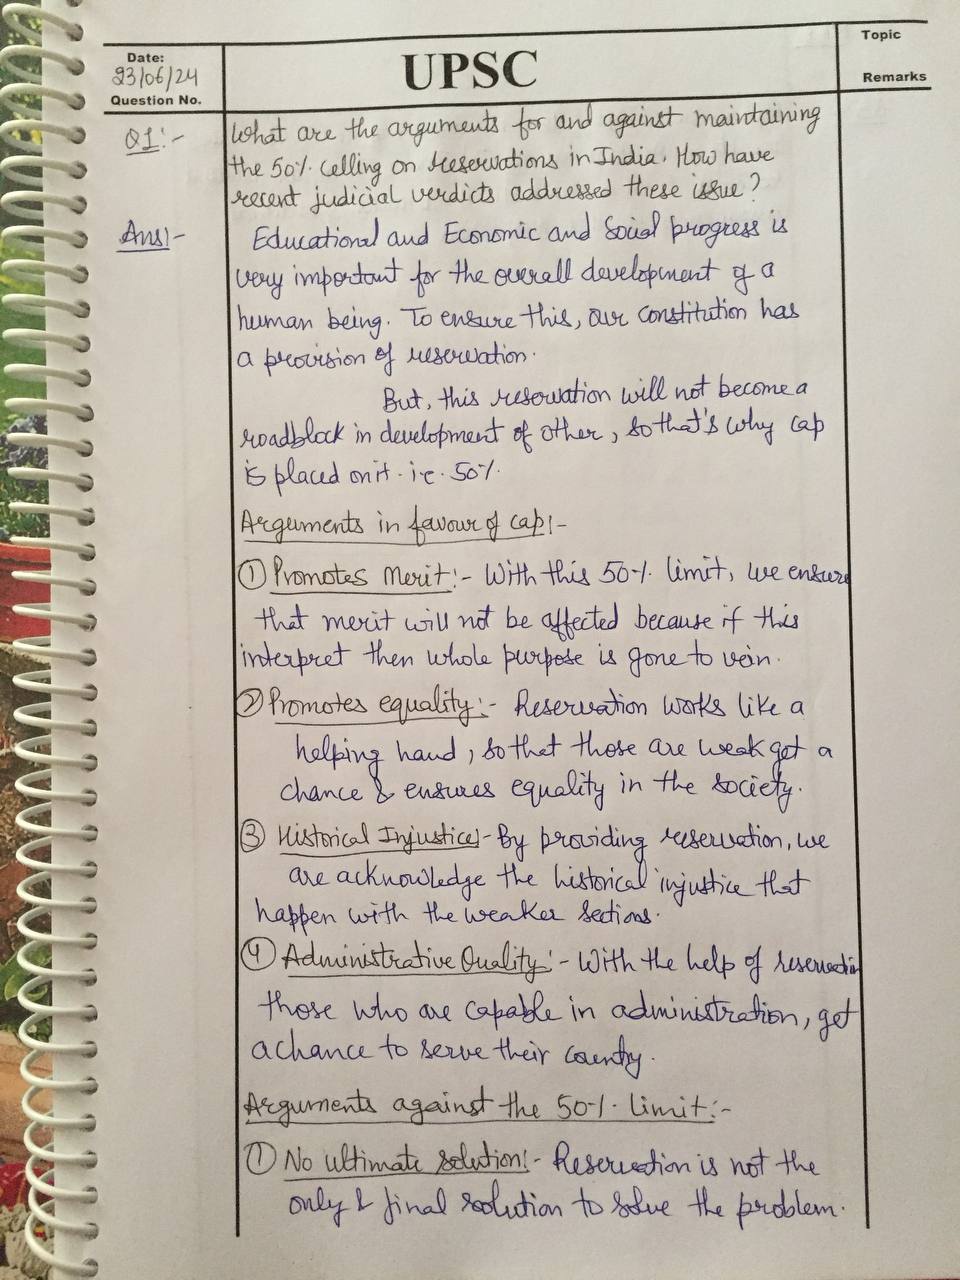 Topic
Date:
23/06/24
UPSC
Remarks
Question No.
Q1:-
What are the arguments for and against maintaining
the 50% Celling on reservations in India. How have
recent judicial verdicts addressed these issue?
Ans:-
Educational and Economic and Social progress is
very important for the overall development of a
human being. To ensure this, our constitution has
a provision of reservation.
But, this reservation will not become a
roadblock in development of other, so that's why cap
is placed on it - i.e. 50%.
Arguments in favour of cap:-
① Promotes Merit:- With this 50% limit, we ensure
that merit will not be affected because if this
interpret then whole purpose is gone to vein.
② Promotes equality:- Reservation works like a
helping hand, so that those are weak get a
chance & ensures equality in the society.
③ Historical Injustice:- By providing reservation, we
are acknowledge the historical injustice that
happen with the weaker sections.
④ Administrative Quality:- With the help of reservation
those who are capable in administration, get
a chance to serve their country.
Arguments against the 50% limit:-
① No ultimate solution:- Reservation is not the
only & final solution to solve the problem.